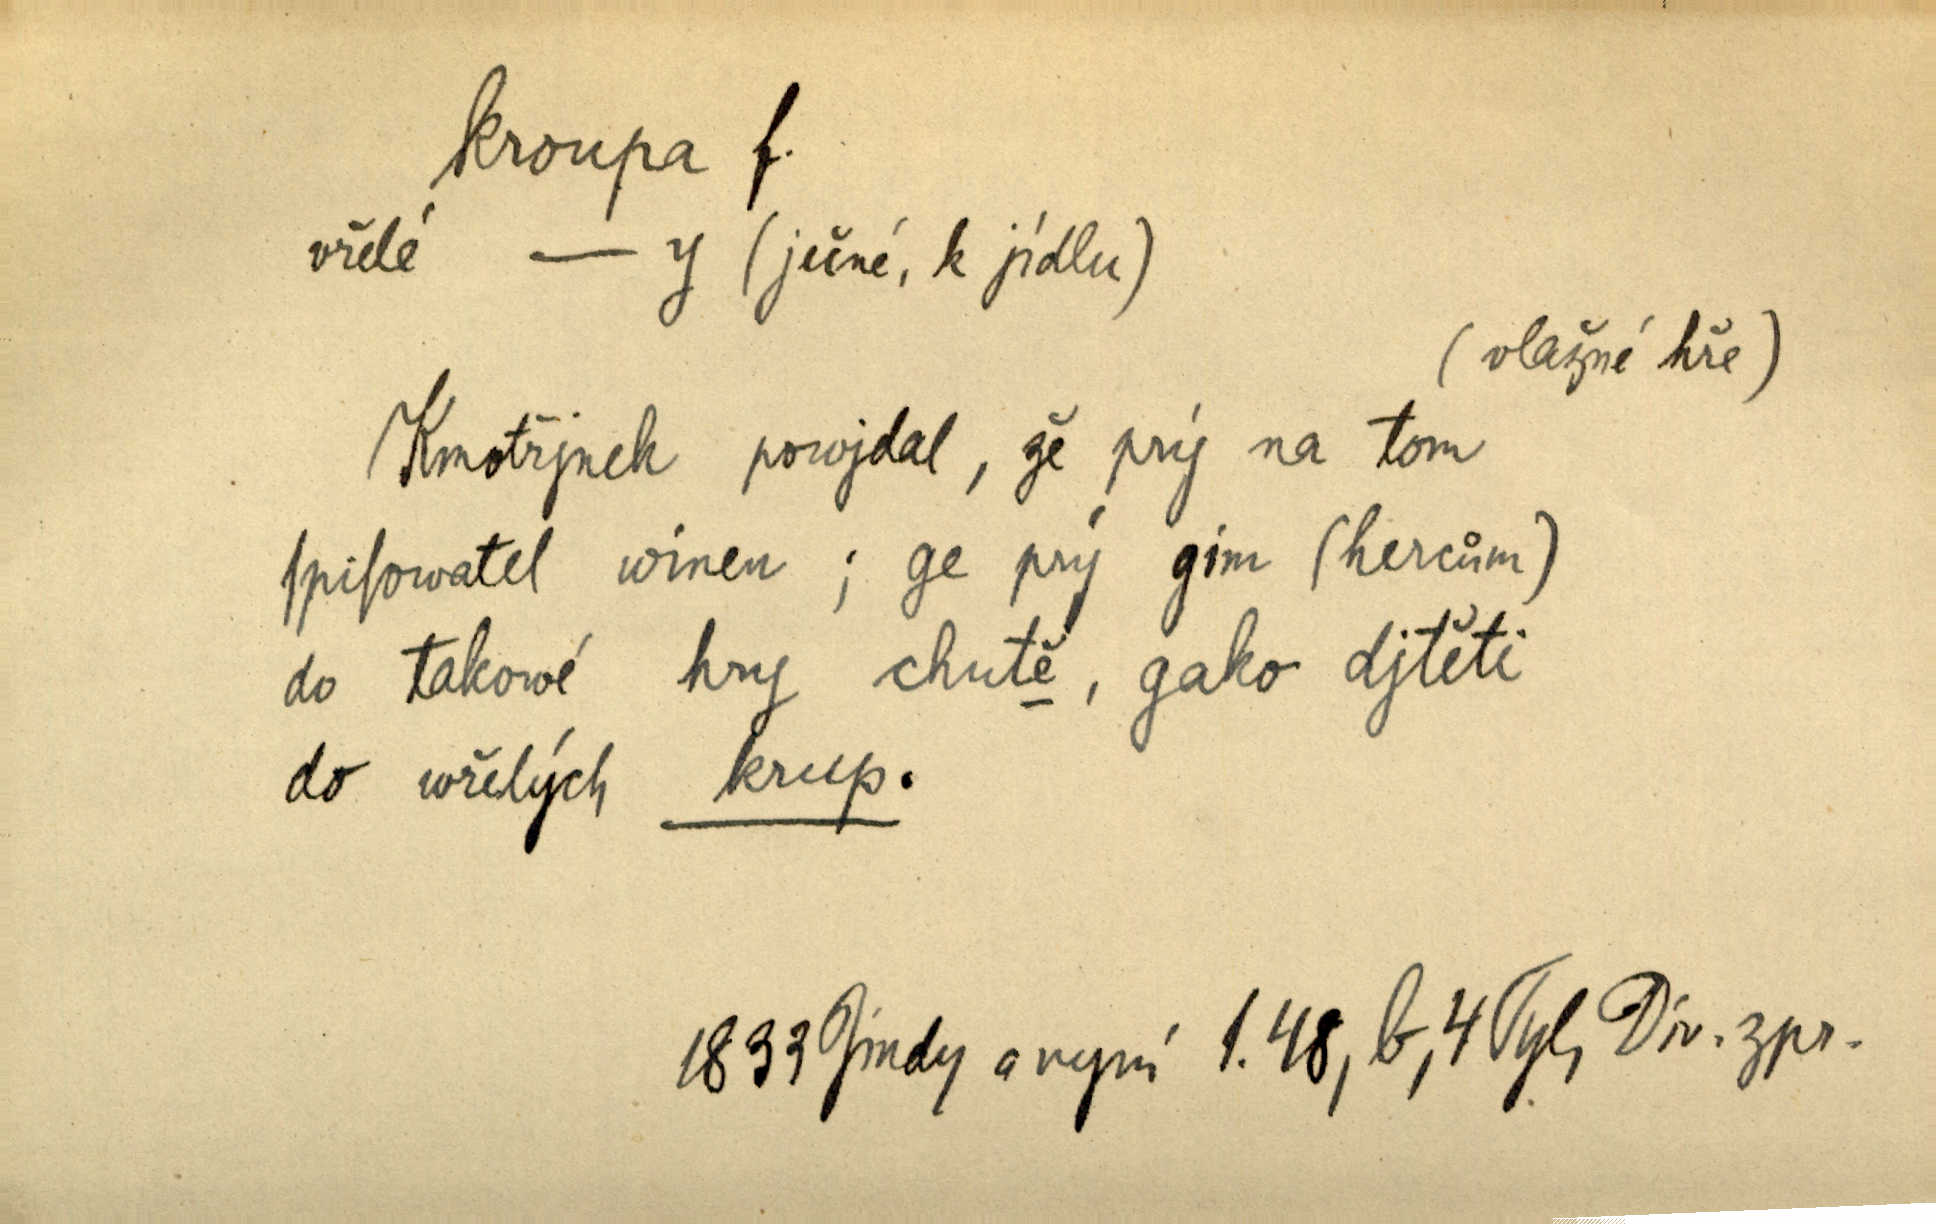 kroupa f.
vřelé — y (ječné, k jídlu)
(vlažné hře)
Kmotřjnek powjdal, že prý na tom
ſpiſowatel winen; ge prý gim (hercům)
do takowé hry chutě, gako djtěti
do wřelých krup.
1833 Jindy a nyní 1.48, b, 4 Tyl, Div. zpr.